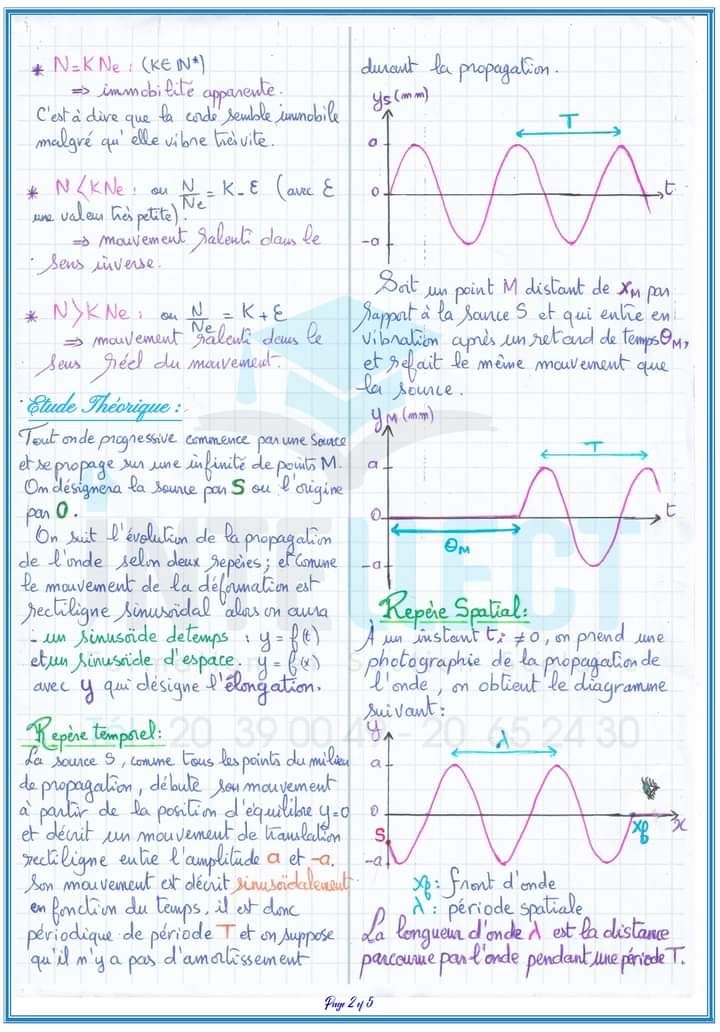 * N=KNe : (K∈ℕ*)
⇒ immobilité apparente.
C'est à dire que la corde semble immobile
malgré qu'elle vibre très vite.
* N<KNe : ou N/Ne = K-ε (avec ε
une valeur très petite).
⇒ mouvement ralenti dans le
sens inverse.
* N>KNe : ou N/Ne = K+ε
⇒ mouvement ralenti dans le
sens réel du mouvement.
Etude Théorique :
Tout onde progressive commence par une source
et se propage sur une infinité de points M.
On désignera la source par S ou l'origine
par O.
On suit l'évolution de la propagation
de l'onde selon deux repères; et comme
le mouvement de la déformation est
rectiligne sinusoïdal alors on aura
- un sinusoïde de temps : y=f(t)
et un sinusoïde d'espace. y=f(x)
avec y qui désigne l'élongation.
Repère temporel:
La source S, comme tous les points du milieu
de propagation, débute son mouvement
à partir de la position d'équilibre y=0
et décrit un mouvement de translation
rectiligne entre l'amplitude a et -a.
Son mouvement est décrit sinusoïdalement
en fonction du temps, il est donc
périodique de période T et on suppose
qu'il n'y a pas d'amortissement
durant la propagation.
ys(mm)
T
a
0
t
-a
Soit un point M distant de xM par
rapport à la source S et qui entre en
vibration après un retard de temps θM,
et refait le même mouvement que
la source.
yM(mm)
T
a
0
t
θM
-a
Repère Spatial:
À un instant ti ≠0, on prend une
photographie de la propagation de
l'onde, on obtient le diagramme
suivant:
y
λ
a
0
xf
x
S
-a
xf: front d'onde
λ : période spatiale
La longueur d'onde λ est la distance
parcourue par l'onde pendant une période T.
INTELLECT
20 39 00 49 - 20 65 24 30
Page 2 of 5